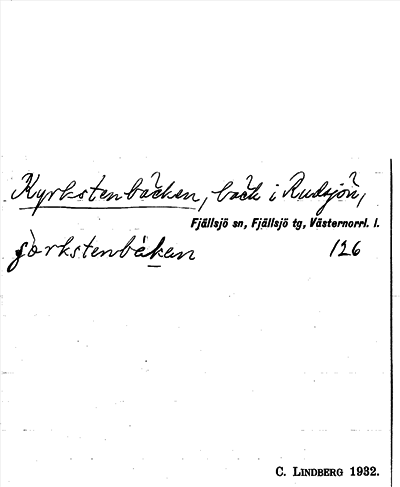 Kyrkstenbäcken, bäck i Rudsjön,
Fjällsjö sn, Fjällsjö tg, Västernorrl. l.
126
C. LINDBERG 1932.